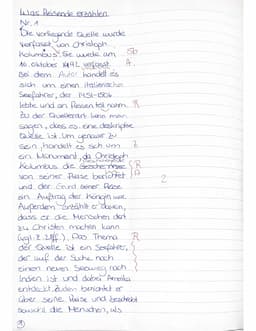 Was Reisende erzählen
Nr. 1
Die vorliegende Quelle wurde
verfasst von Christoph
Kolumbus. Sie wurde am Sb
10. Oktober 1492 verfasst. A
Bei dem Autor handelt es
sich um einen italienischen
Seefahrer, der 1451-1506
lebte und an Reisen teilnahm. R
Zu der Quellenart kann man
sagen, dass es eine deskriptive
Quelle ist. Um genauer zu
sein, handelt es sich um Z
ein Monument, da Christoph
Kolumbus die Geschehnisse R
von seiner Reise berichtet A
und der Grund seiner Reise 2
ein Auftrag der Königin war.
Außerdem erzählt er davon,
dass er die Menschen dort
zu Christen machen kann
(vgl. Z. 2ff.). Das Thema R
der Quelle ist ein Seefahrer,
der auf der Suche nach
einen neuen Seeweg nach
Indien ist und dabei Amerika
entdeckt. Zudem berichtet er
über seine Reise und beschreibt
sowohl die Menschen, als